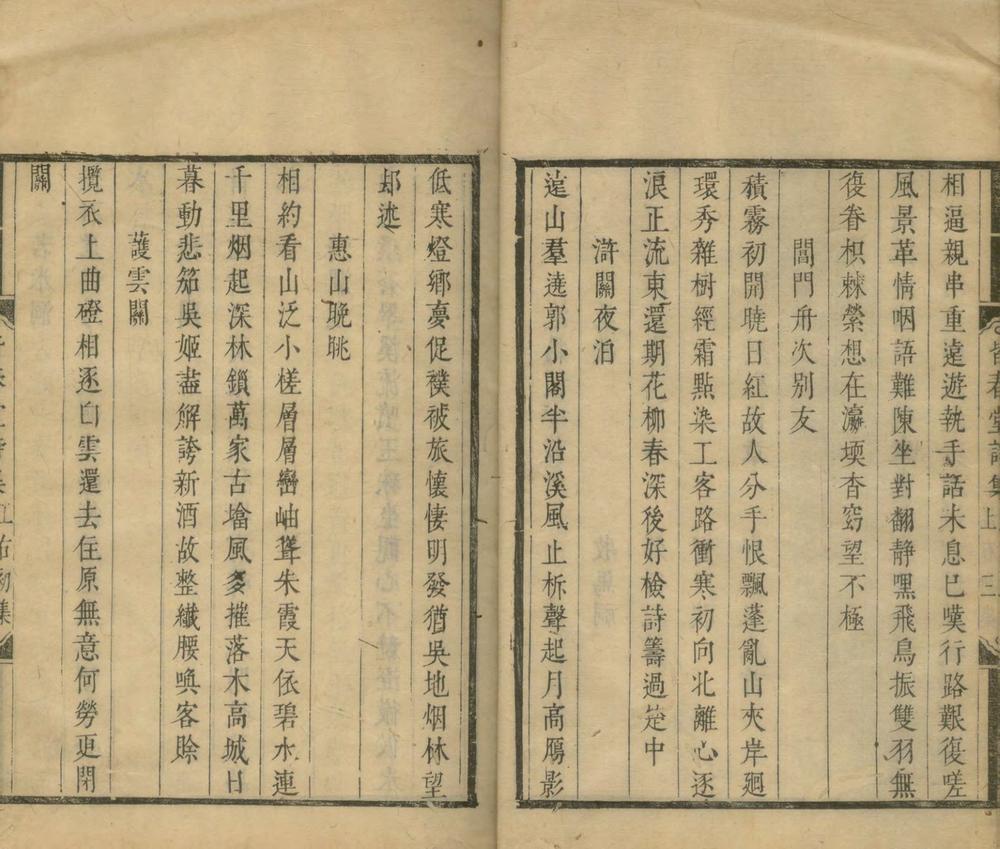 相逼親串重遠遊執手話未息已嘆行路艱復嗟
風景革情咽語難陳坐對翻靜嘿飛鳥振雙羽無
復眷枳棘縈想在瀛堧杳窈望不極
閶門舟次別友
積霧初開曉日紅故人分手恨飄蓬亂山夾岸廻
環秀雜樹經霜點染工客路衝寒初向北離心逐
浪正流東還期花柳春深後好檢詩籌過楚中
滸關夜泊
遠山羣遶郭小閣半沿溪風止柝聲起月高鴈影
低寒燈鄉夢促襆被旅懷悽明發猶吳地烟林望
却迷
惠山晚眺
相約看山泛小槎層層巒岫聳朱霞天依碧水連
千里烟起深林鎖萬家古墖風多摧落木高城日
暮動悲笳吳姬盡解誇新酒故整纖腰喚客賒
護雲關
攬衣上曲磴相逐白雲還去住原無意何勞更閉
關
春堂詩集
上
三
初集